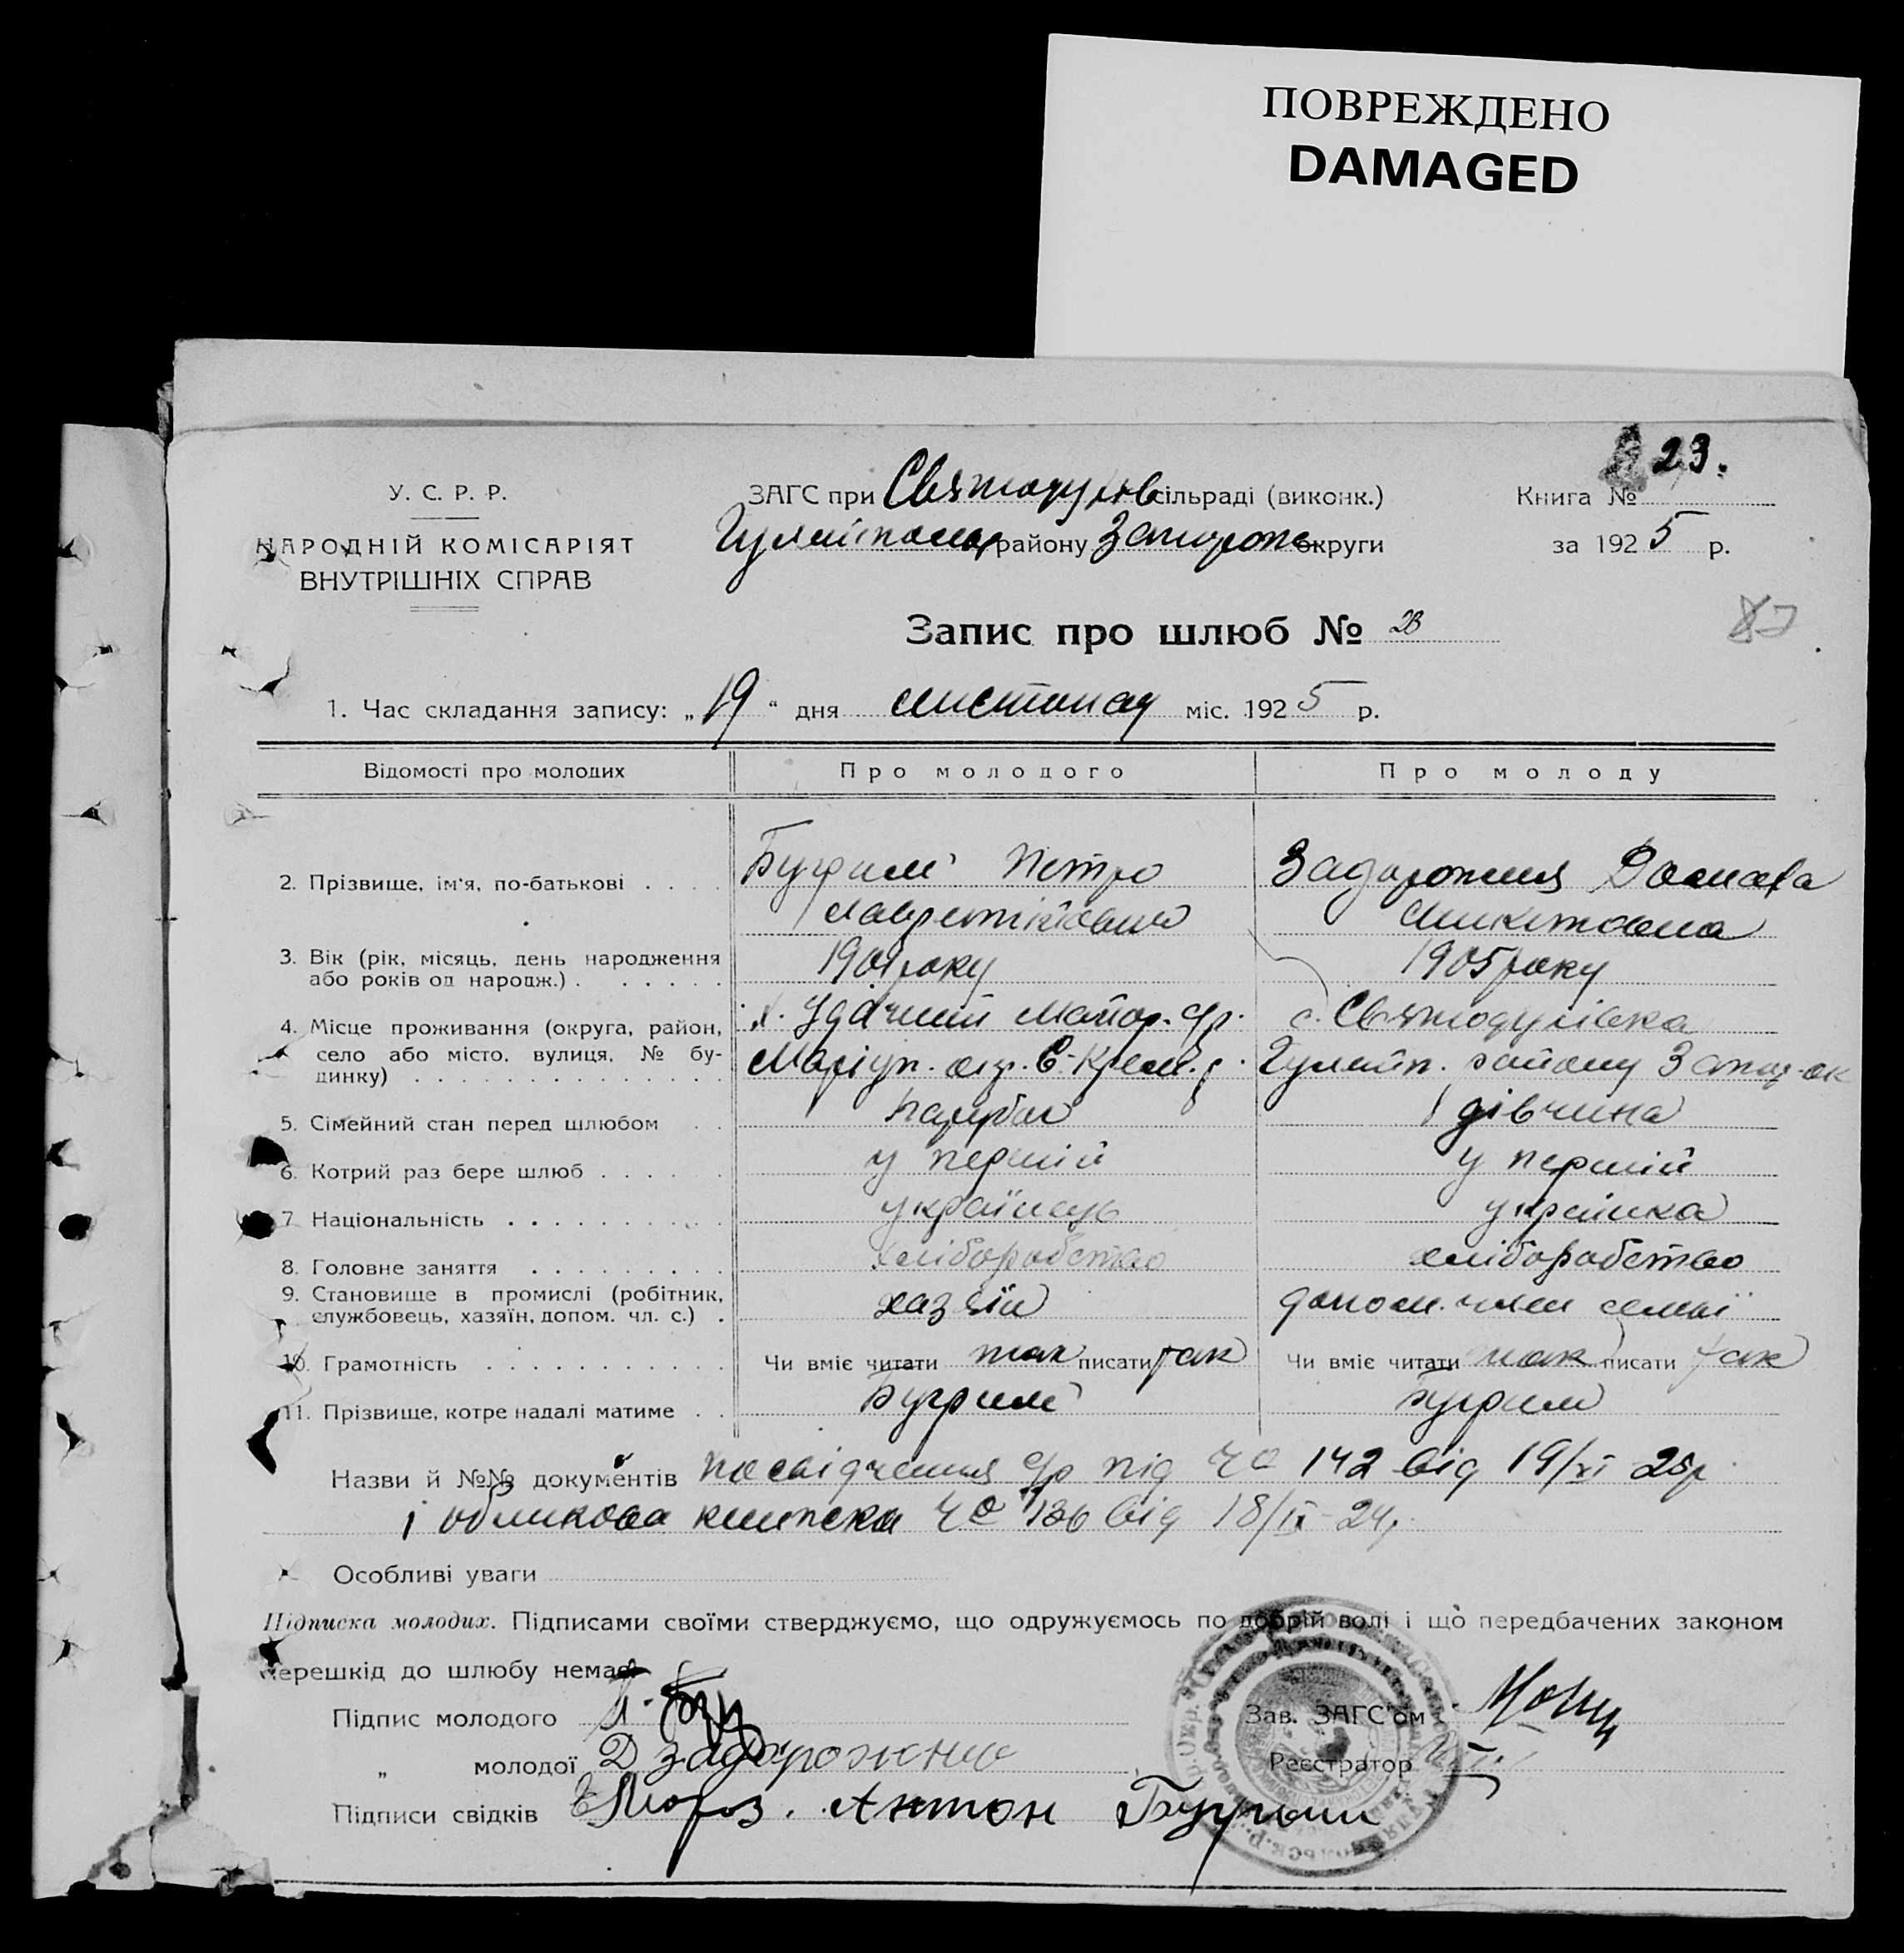 ПОВРЕЖДЕНО
DAMAGED
23.
У. С. Р. Р.
НАРОДНІЙ КОМІСАРІЯТ
ВНУТРІШНІХ СПРАВ
ЗАГС при Святодухів сільраді (виконк.)
Книга №
Гуляйполь району Запорож округи
за 1925 р.
Запис про шлюб № 23
87
1. Час складання запису: „19“ дня листопад міс. 1925 р.
Відомості про молодих Про молодого Про молоду
2. Прізвище, ім'я, по-батькові . . . . Бугрим Петро Задорожня Домаха
Лаврентійович Микитовна
3. Вік (рік, місяць, день народження
або років од народж.) . . . . . . 1901 року 1905 року
4. Місце проживання (округа, район,
село або місто, вулиця, № бу-
динку) . . . . . . . . . . . . . .
х. Удачний Майор. с/р. с. Святодухівка
Маріуп. окр. В-Крем. р. Гуляйп. району Запор. ок
5. Сімейний стан перед шлюбом . . парубок дівчина
6. Котрий раз бере шлюб . . . . . . у перший у перший
7. Національність . . . . . . . . . . українець українка
8. Головне заняття . . . . . . . . . хліборобство хліборобство
9. Становище в промислі (робітник,
службовець, хазяїн, допом. чл. с.) . хазяїн допом. член семьї
10. Грамотність . . . . . . . . . . . Чи вміє читати так писати так Чи вміє читати так писати так
11. Прізвище, котре надалі матиме . . Бугрим Бугрим
Назви й №№ документів посвідчення с/р під Чо 142 від 19/XI 25р
і облікова книжка Чо 136 від 18/IX-24р.
Особливі уваги
Підписка молодих. Підписами своїми стверджуємо, що одружуємось по добрій волі і що передбачених законом
перешкід до шлюбу немає.
Підпис молодого П. Буг
Зав. ЗАГС'ом
„ молодої Д Задорожня
Реєстратор
Підписи свідків Мороз. Антон Бугрим